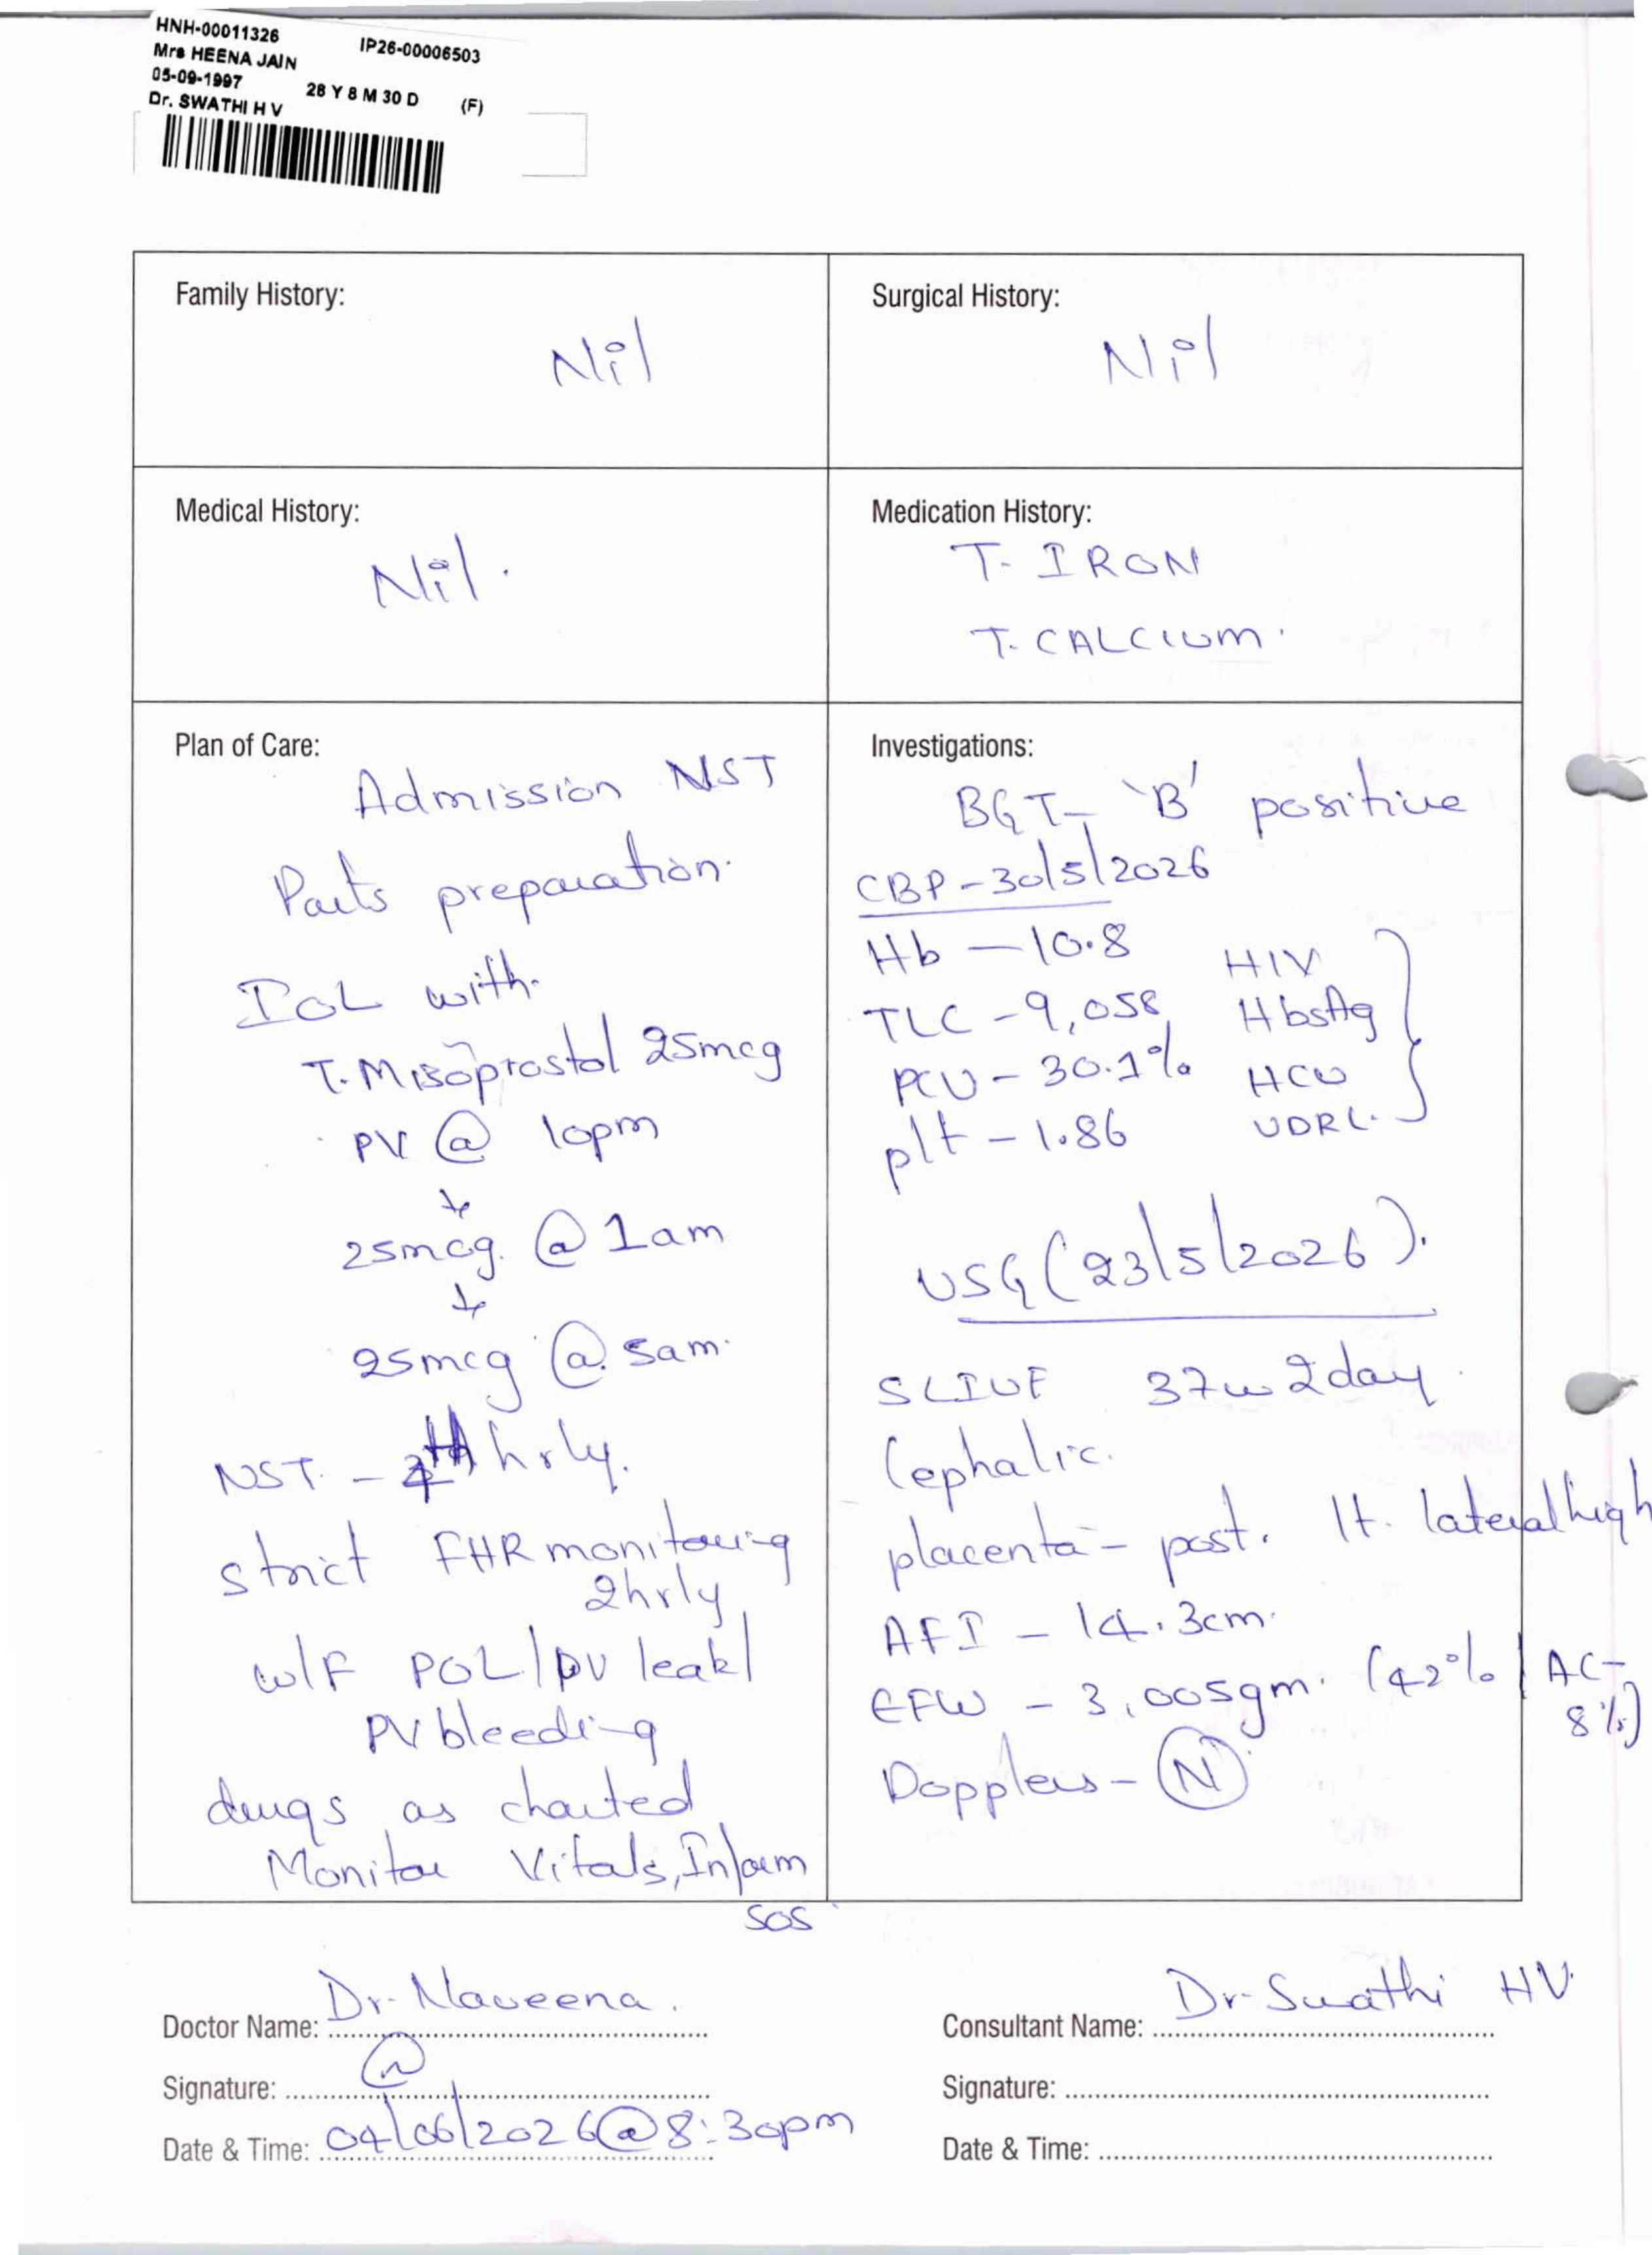 HNH-00011326 IP26-00006503
Mrs HEENA JAIN
05-09-1997 28 Y 8 M 30 D (F)
Dr. SWATHI H V
Family History:
Nil
Surgical History:
Nil
Medical History:
Nil.
Medication History:
T. IRON
T. CALCIUM.
Plan of Care:
Admission NST
Parts preparation.
IOL with.
T. Misoprostol 25mcg
PV @ 10pm
↓
25mcg. @ 1am
↓
25mcg @ 5am.
NST - hrly.
strict FHR monitoring
2hrly
w/F POL/PV leak/
PV bleeding
drugs as charted
Monitor Vitals, Inform
SOS
Investigations:
BGT - 'B' positive
CBP - 30/5/2026
Hb - 10.8
TLC - 9,058
PCV - 30.1%
plt - 1.86
HIV
HbsAg
HCV
VDRL.
USG (23/5/2026).
SLIUF 37w 2day
Cephalic.
placenta - post. lt. lateral high
AFI - 14.3cm.
EFW - 3,005gm. (42% / AC-
8%)
Dopplers - N
Doctor Name: Dr. Naveena.
Signature:
Date & Time: 04/06/2026 @ 8:30pm
Consultant Name: Dr. Swathi HV.
Signature:
Date & Time: